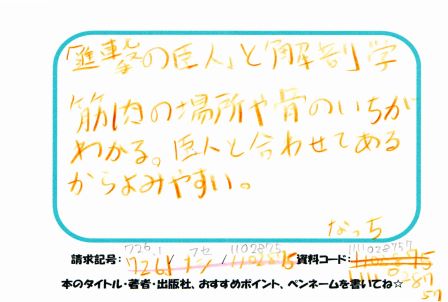 「進撃の巨人」と「解剖」学
筋肉の場所や骨のいちが
わかる。巨人と合わせてある
からよみやすい。
なっち
請求記号: 726.1/ナシ/1102875 資料コード: 1110287757
本のタイトル・著者・出版社、おすすめポイント、ペンネームを書いてね☆